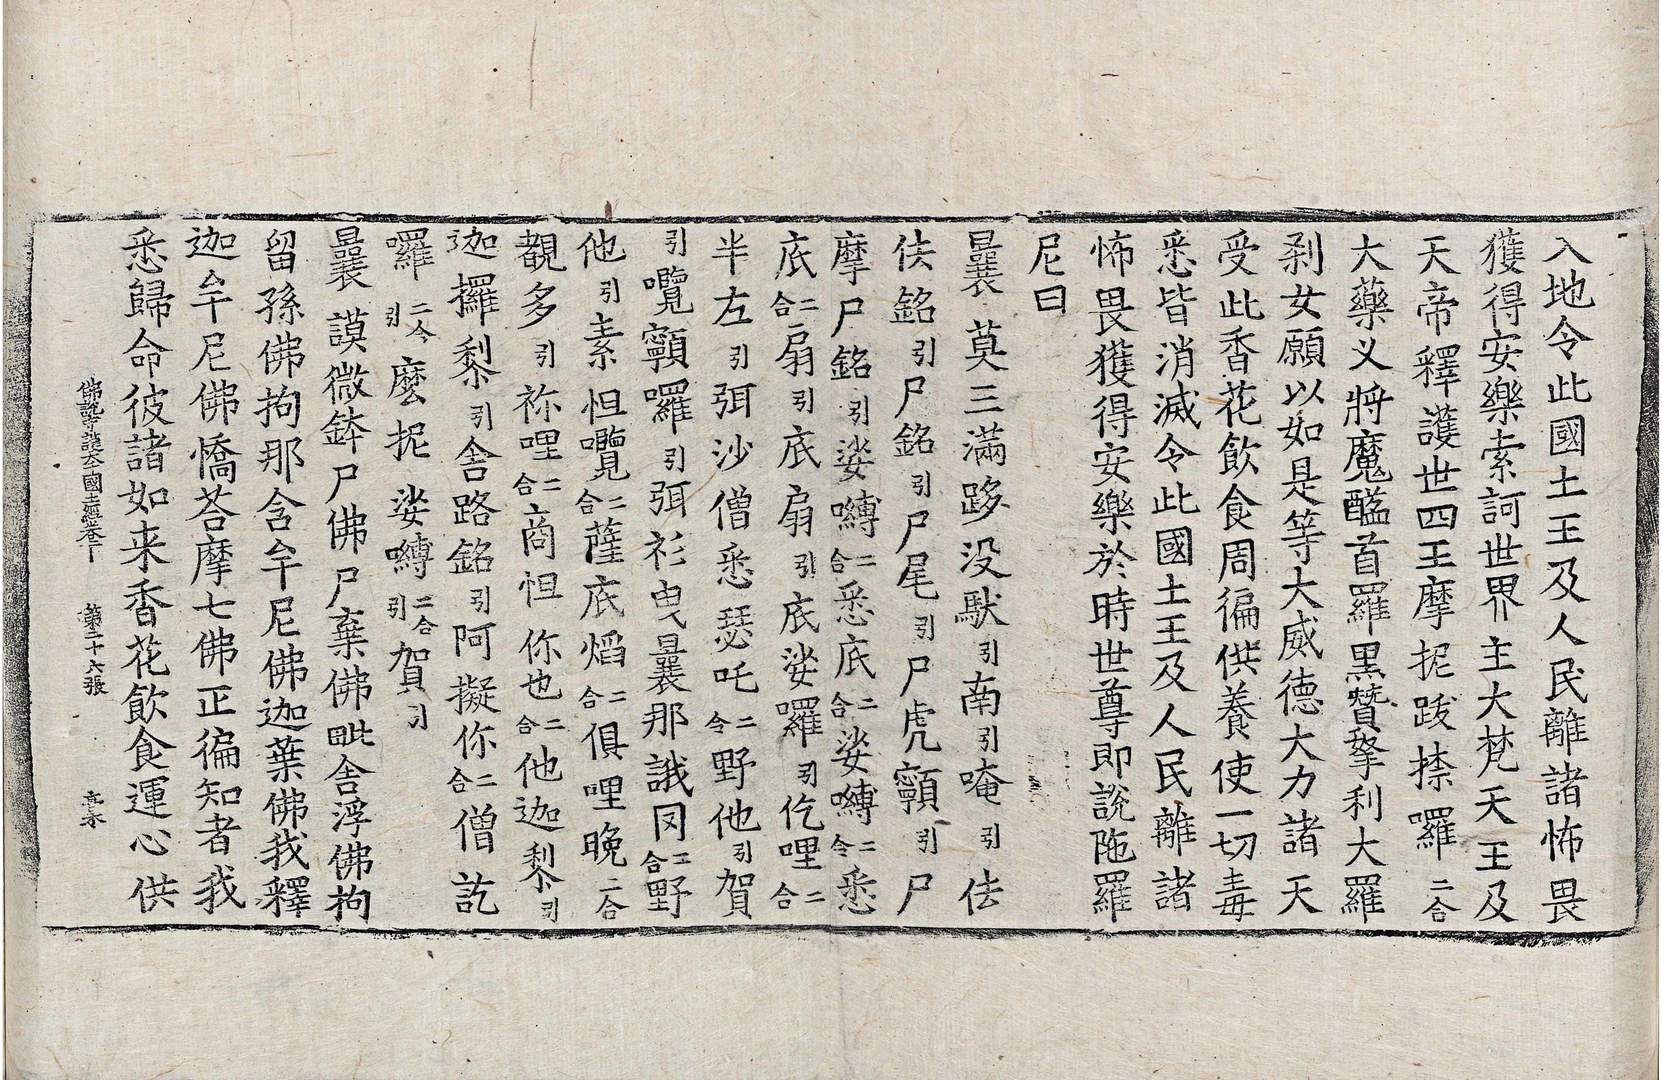 入地令此國土王及人民離諸怖畏
獲得安樂索訶世界主大梵天王及
天帝釋護世四王摩抳跋捺囉二合
大藥叉將魔醯首羅黑贊拏利大羅
剎女願以如是等大威德大力諸天
受此香花飲食周徧供養使一切毒
悉皆消滅令此國土王及人民離諸
怖畏獲得安樂於時世尊即說陁羅
尼曰
曩莫三滿跢没馱引南引唵引佉
佉銘引尸銘引尸尾引尸虎顙引尸
摩尸銘引娑嚩二合悉底二合娑嚩二合悉
底二合扇引底扇引底娑囉引仡哩二合
半左引弭沙僧悉瑟吒二合野他引賀
引囕顙囉引弭衫曳曩那誐罔二合野
他引素怛囕二合薩底焰二合俱哩晚二合
覩多引祢哩二合商怛你也二合他迦黎引
迦攞黎引舍路銘引阿擬你二合僧訖
囉二合引麼抳娑嚩二合引賀引
曩謨微鉢尸佛尸棄佛毗舍浮佛拘
留孫佛拘那含牟尼佛迦葉佛我釋
迦牟尼佛憍荅摩七佛正徧知者我
悉歸命彼諸如来香花飲食運心供
佛說守護大千國土經卷下 第二十六張